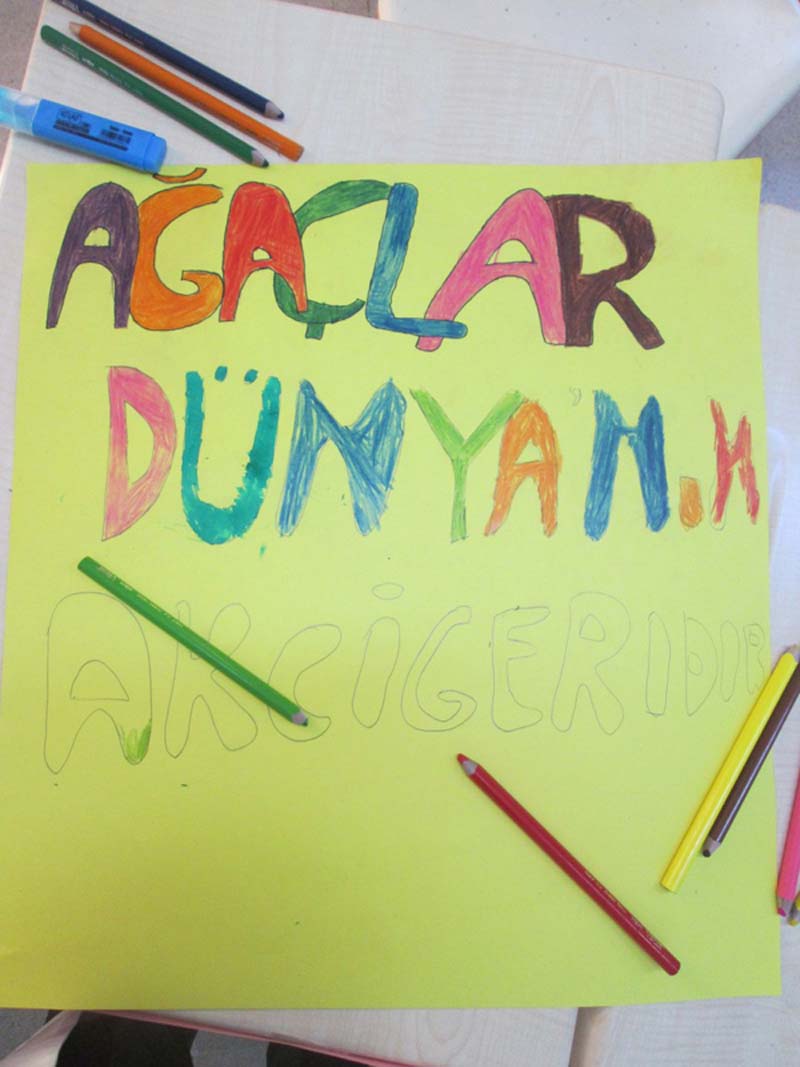 AĞAÇLAR
DÜNYANıN
AKCİGERIDIR